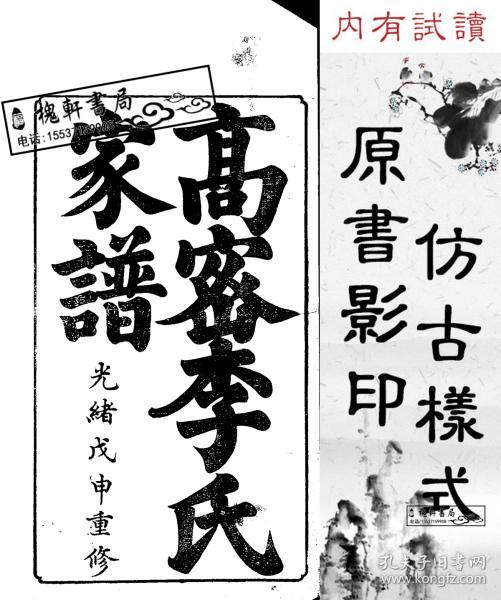 讀試有内
原書影印
仿古樣式
高密李氏
家譜
光緒戊申重修
槐軒書局
槐軒書局
孔夫子旧书网
www.kongfz.com